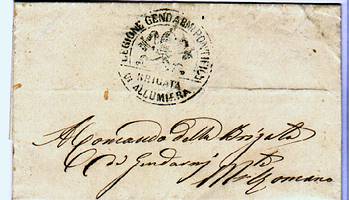 LEGIONE GENDARMI PONTIFICI
BRIGATA
DI ALLUMIERA
Al Comando della Brigata
di Gendarmi
Romano